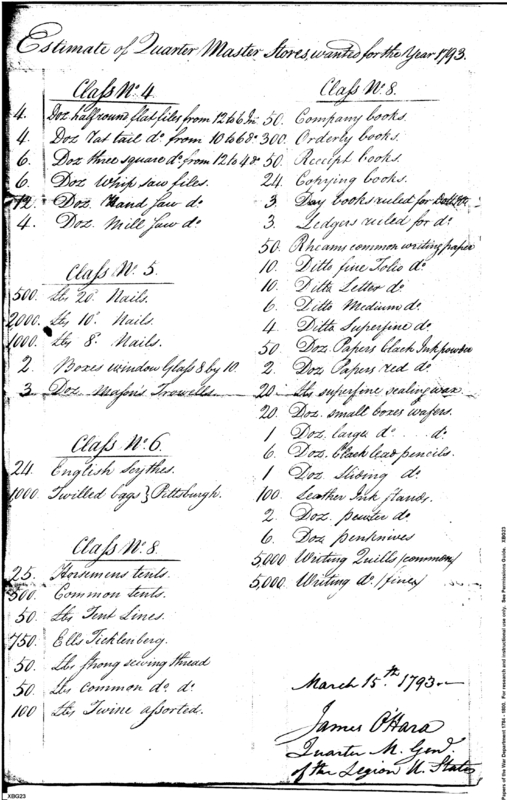 Estimate of Quarter Master Stores, wanted for the Year 1793.
Class No. 4
4. Doz halfround flat files from 12 to 6 In
4. Doz Rat tail do. from 10 to 6 do
6. Doz three square do. from 12 to 4 do
6. Doz Whip saw files.
12. Doz Hand saw do
4. Doz. Mill saw do
Class No. 5
500. Lbs 20d. Nails.
2000. Lbs 10d. Nails.
1000. Lbs 8d. Nails.
2. Boxes window Glass 8 by 10.
3. Doz Mason's Trowells.
Class No. 6
24. English Scythes.
1000 Twilled bags } Pittsburgh.
Class No. 8.
25. Horsemens tents.
500. Common tents.
50. Lbs Tent Lines.
750. Ells Ticklenberg.
50. Lbs strong sewing thread
50. Lbs common do. do.
100 Lbs Twine assorted.
Class No. 8.
50. Company books.
300. Orderly books.
50. Receipt books.
24. Copying books.
3. Day books ruled for
3. Ledgers ruled for do.
50. Rheams common writing paper
10. Ditto fine Folio do.
10. Ditto Letter do
6. Ditto Medium do.
4. Ditto Superfine do.
50. Doz. Papers black Ink powder
2. Doz. Papers red do.
20. lbs superfine sealing wax.
20. Doz. small boxes wafers.
1 Doz. large do. .. do.
6. Doz. black lead pencils.
1 Doz. Sliding do.
100. Leather Ink stands.
2. Doz. pewter do.
6. Doz penknives
5,000 Writing Quills /common/
5,000. Writing do. /fine/
March 15.th 1793
James O'Hara
Quarter M. Genl.
of the Legion U. States
XBG23
Papers of the War Department 1784 - 1800. For research and instructional use only. See Permissions Guide. XBG23